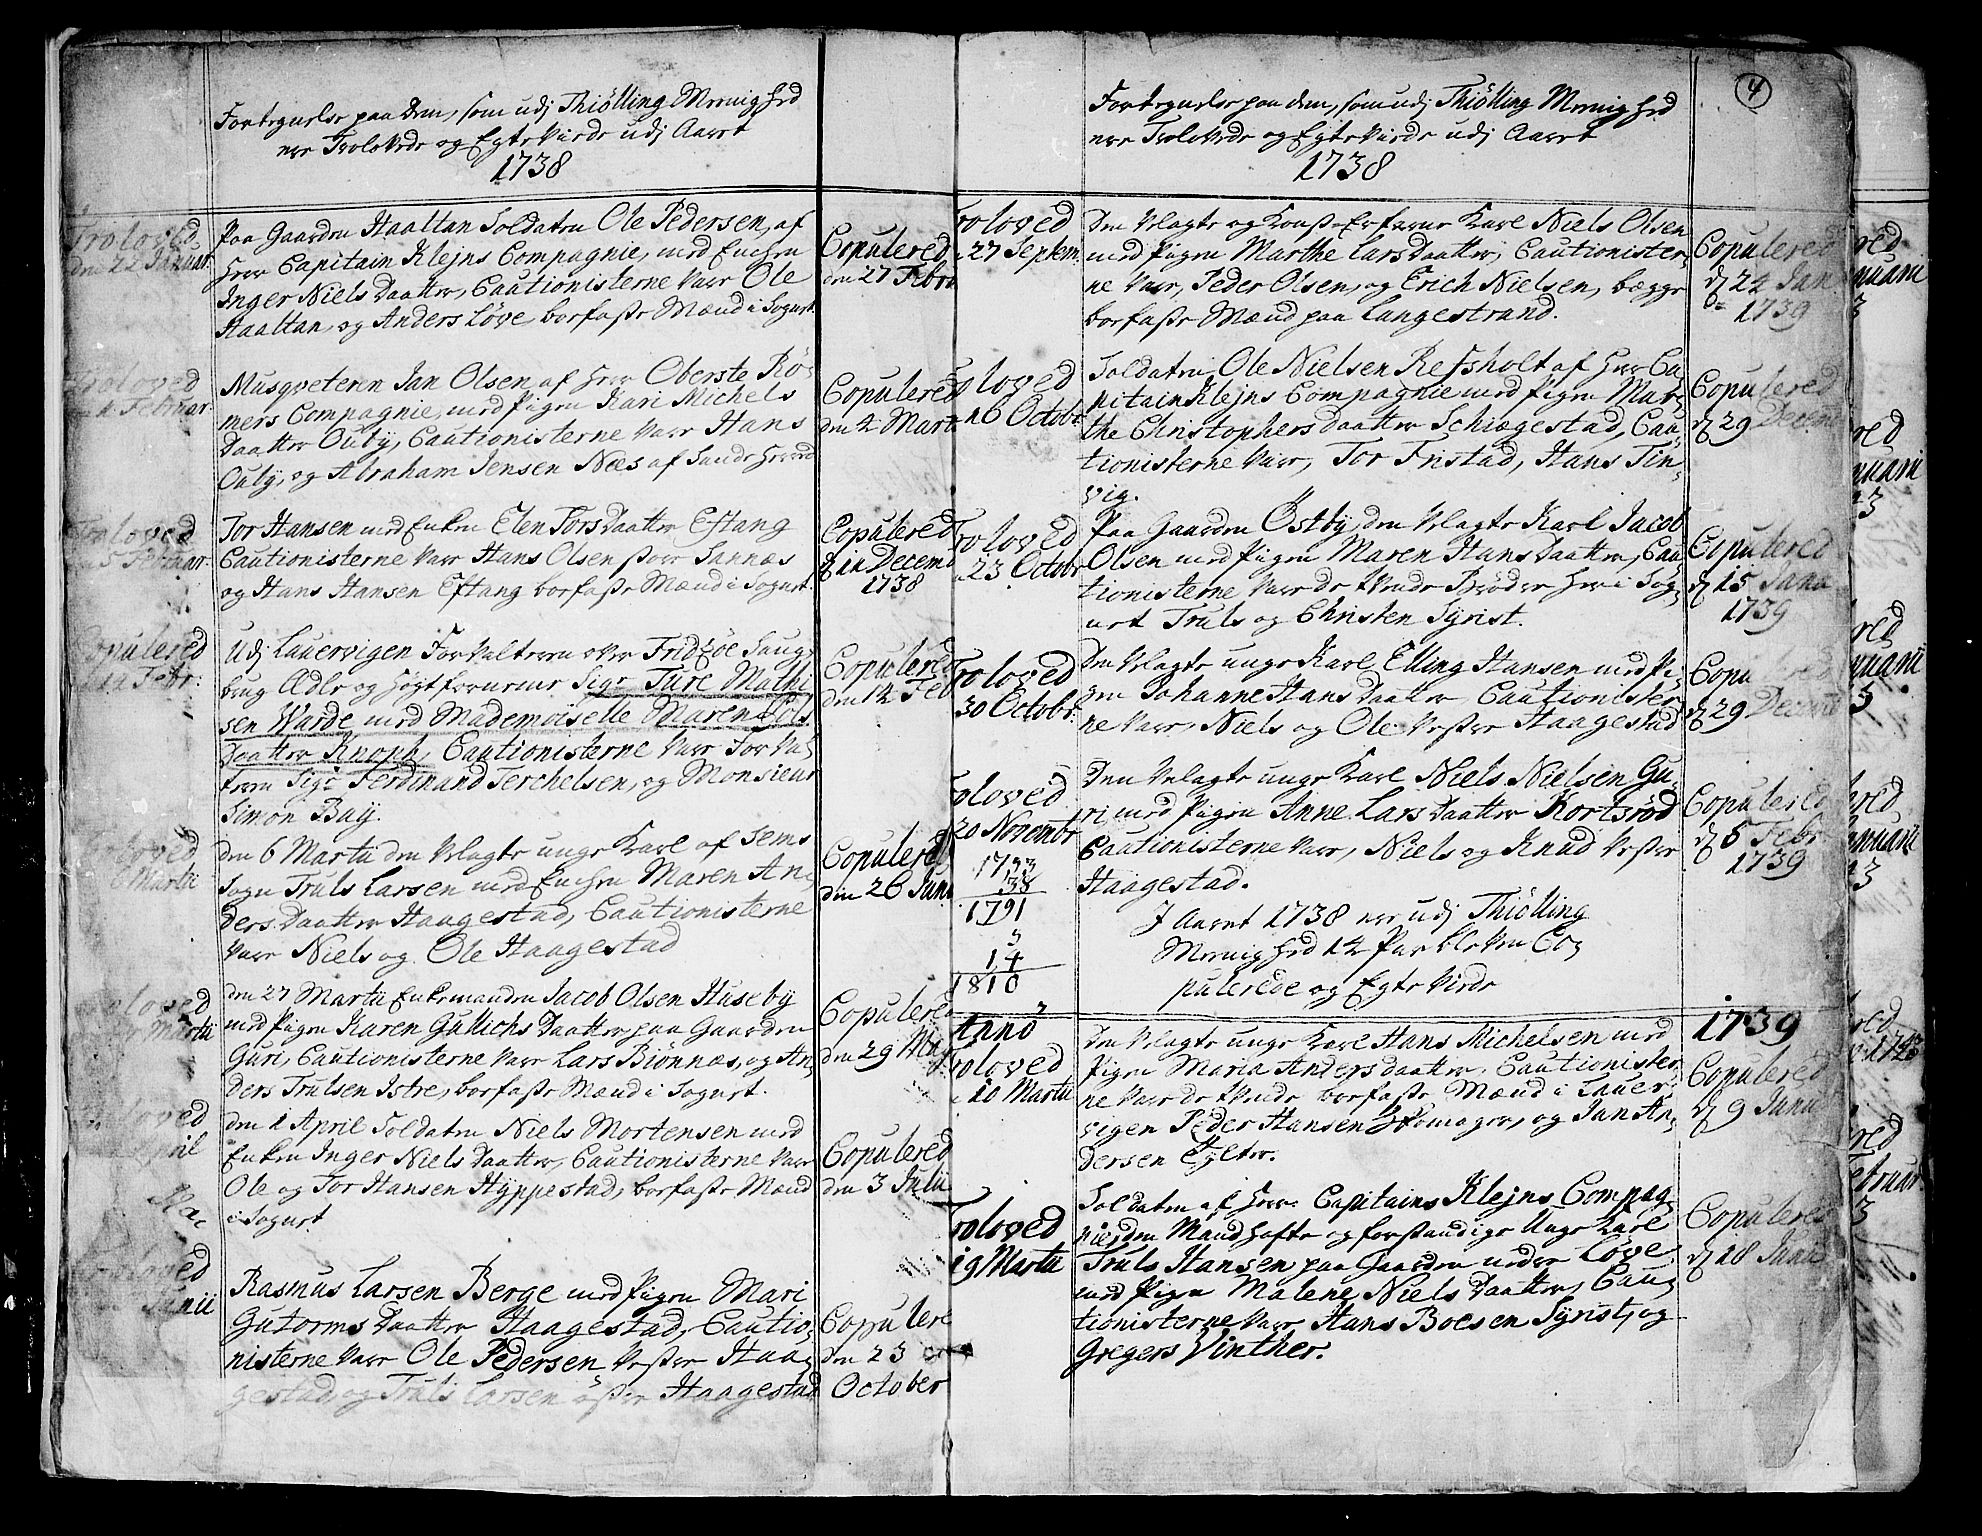 Fortegnelse paa dem, som udj Thiølling Menighed
ere Trolovede og Egte Viede udj Aaret
1738
Troloved
den 22 Januar
Paa Gaarden Haaltan Soldaten Ole Pedersen, af
Herr Capitain Klejns Compagnie, med Enchen
Inger Niels Daatter, Cautionisterne Vare Ole
Haaltan, og Anders Løve, boefaste Mænd i Sognet.
Copulered
den 27 Febru
Troloved
Februar
Musqveteren Jan Olsen af Herr Oberste Rø-
mers Compagnie, med Pigen Kari Michels
Daatter Ouby, Cautionisterne Vare Hans
Ouby, og Abraham Jensen Næs af Sandeherred
Copulered
den 2 Marti
Troloved
5 Februar
Tor Hansen med Enken Elen Tors Daatter Eftang
Cautionisterne Vare Hans Olsen store Sannæs
og Hans Hansen Eftang boefaste Mænd i Sognet.
Copulered
Decemb
1738
Copulered
Febr:
Udj Lauervigen Forvalteren over Fridzøe Saug-
brug Adle og Høgtfornemme Sigr Ture Mathi
sen Warde med Mademoiselle Maren Ols
Daatter Knoph, Cautionisterne Vare Forval-
teren Sigr Ferdinand Terchelsen, og Monsieur
Simon Bay.
Copulered
den 12 Feb
Troloved
6 Martii
den 6 Martii den Velagte unge Karl af Sems
Sogn Truls Larsen med Enchen Maren An-
ders Daatter Haagestad, Cautionisterne
Vare Niels og Ole Haagestad
Copulered
den 26 Juni
Troloved
Martii
den 27 Martii Enkemanden Jacob Olsen Huseby
med Pigen Karen Gullichs Daatter paa Gaarden
Guri, Cautionisterne Vare Lars Biønnæs, og An-
ders Trulsen Istre, boefaste Mænd i Sognet.
Copulered
den 29 Maj
Troloved
April
den 1 April Soldaten Niels Mortensen med
Enken Inger Niels Daatter, Cautionisterne Vare
Ole og Tor Hansen Hyppestad, boefaste Mænd
i Sognet
Copulered
den 3 Julii
Troloved
Junii
Rasmus Larsen Berge med Pigen Mari
Gutorms Daatter Haagestad, Cautio-
nisterne Vare Ole Pedersen Vester Haa-
gestad, og Truls Larsen øster Haagestad
Copulere
den 23
October
4
Fortegnelse paa dem, som udj Thiølling Menighed
ere Trolovede og Egte Viede udj Aaret
1738
Troloved
27 Septem:
Den Velagte og Konst-Erfarne Karl Niels Olsen
med Pigen Marthe Lars Daatter, Cautionister-
ne Vare, Peder Olsen, og Erich Nielsen, begge
boefaste Mænd paa Langestrand.
Copulered
d 22 Jan
1739
Troloved
16 Octobr
Soldaten Ole Nielsen Refsholt af Herr Ca-
pitain Klejns Compagnie med Pigen Mar-
the Christophers Daatter Schiægestad, Cau-
tionisterne Vare, Tor Fristad, Hans Tin-
vig.
Copulered
d 29 Decemb
Troloved
23 Octobr
Paa Gaarden Østby, den Velagte Karl Jacob
Olsen med Pigen Maren Hans Daatter, Cau-
tionisterne Vare de tvende Brødre her i Sog-
net Truls og Christen Syrist.
Copulered
d 15 Janu
1739
Troloved
30 Octobr.
Den Velagte unge Karl Elling Hansen med Pi-
gen Johanne Hans Daatter Cautionister-
ne Vare, Niels og Ole Vester Haagestad
Copu
d 29 Decemb
Troloved
20 Novembr
Den Velagte unge Karl Niels Nielsen Gu-
ri, med Pigen Anne Lars Daatter Kortsrød
Cautionisterne Vare, Niels og Knud Vester
Haagestad.
Copulered
d 5 Febr
1739
38
1791
14
1810
I Aaret 1738 ere udj Thiølling
Menighed 12 Par bleven Co-
pulerede og Egte Viede
Anno
1739
Troloved
20 Martii
Den Velagte unge Karl Hans Michelsen med
Pigen Maria Anders Daatter, Cautionister-
ne Vare de tvende boefaste Mænd i Lauer-
vigen Peder Hansen Skomager, og Jan An-
dersen Eylter.
Copulered
d 9 Janu
Troloved
19 Martii
Soldaten af Herr Capitains Klejns Compag-
nie, den Mandhafte og forstandige Unge Karl
Truls Hansen paa Gaarden nedre Løve
med Pigen Malene Niels Daatter, Cau-
tionisterne Vare Hans Boesen Syrist, og
Gregers Vinther.
Copulered
d 18 Juni